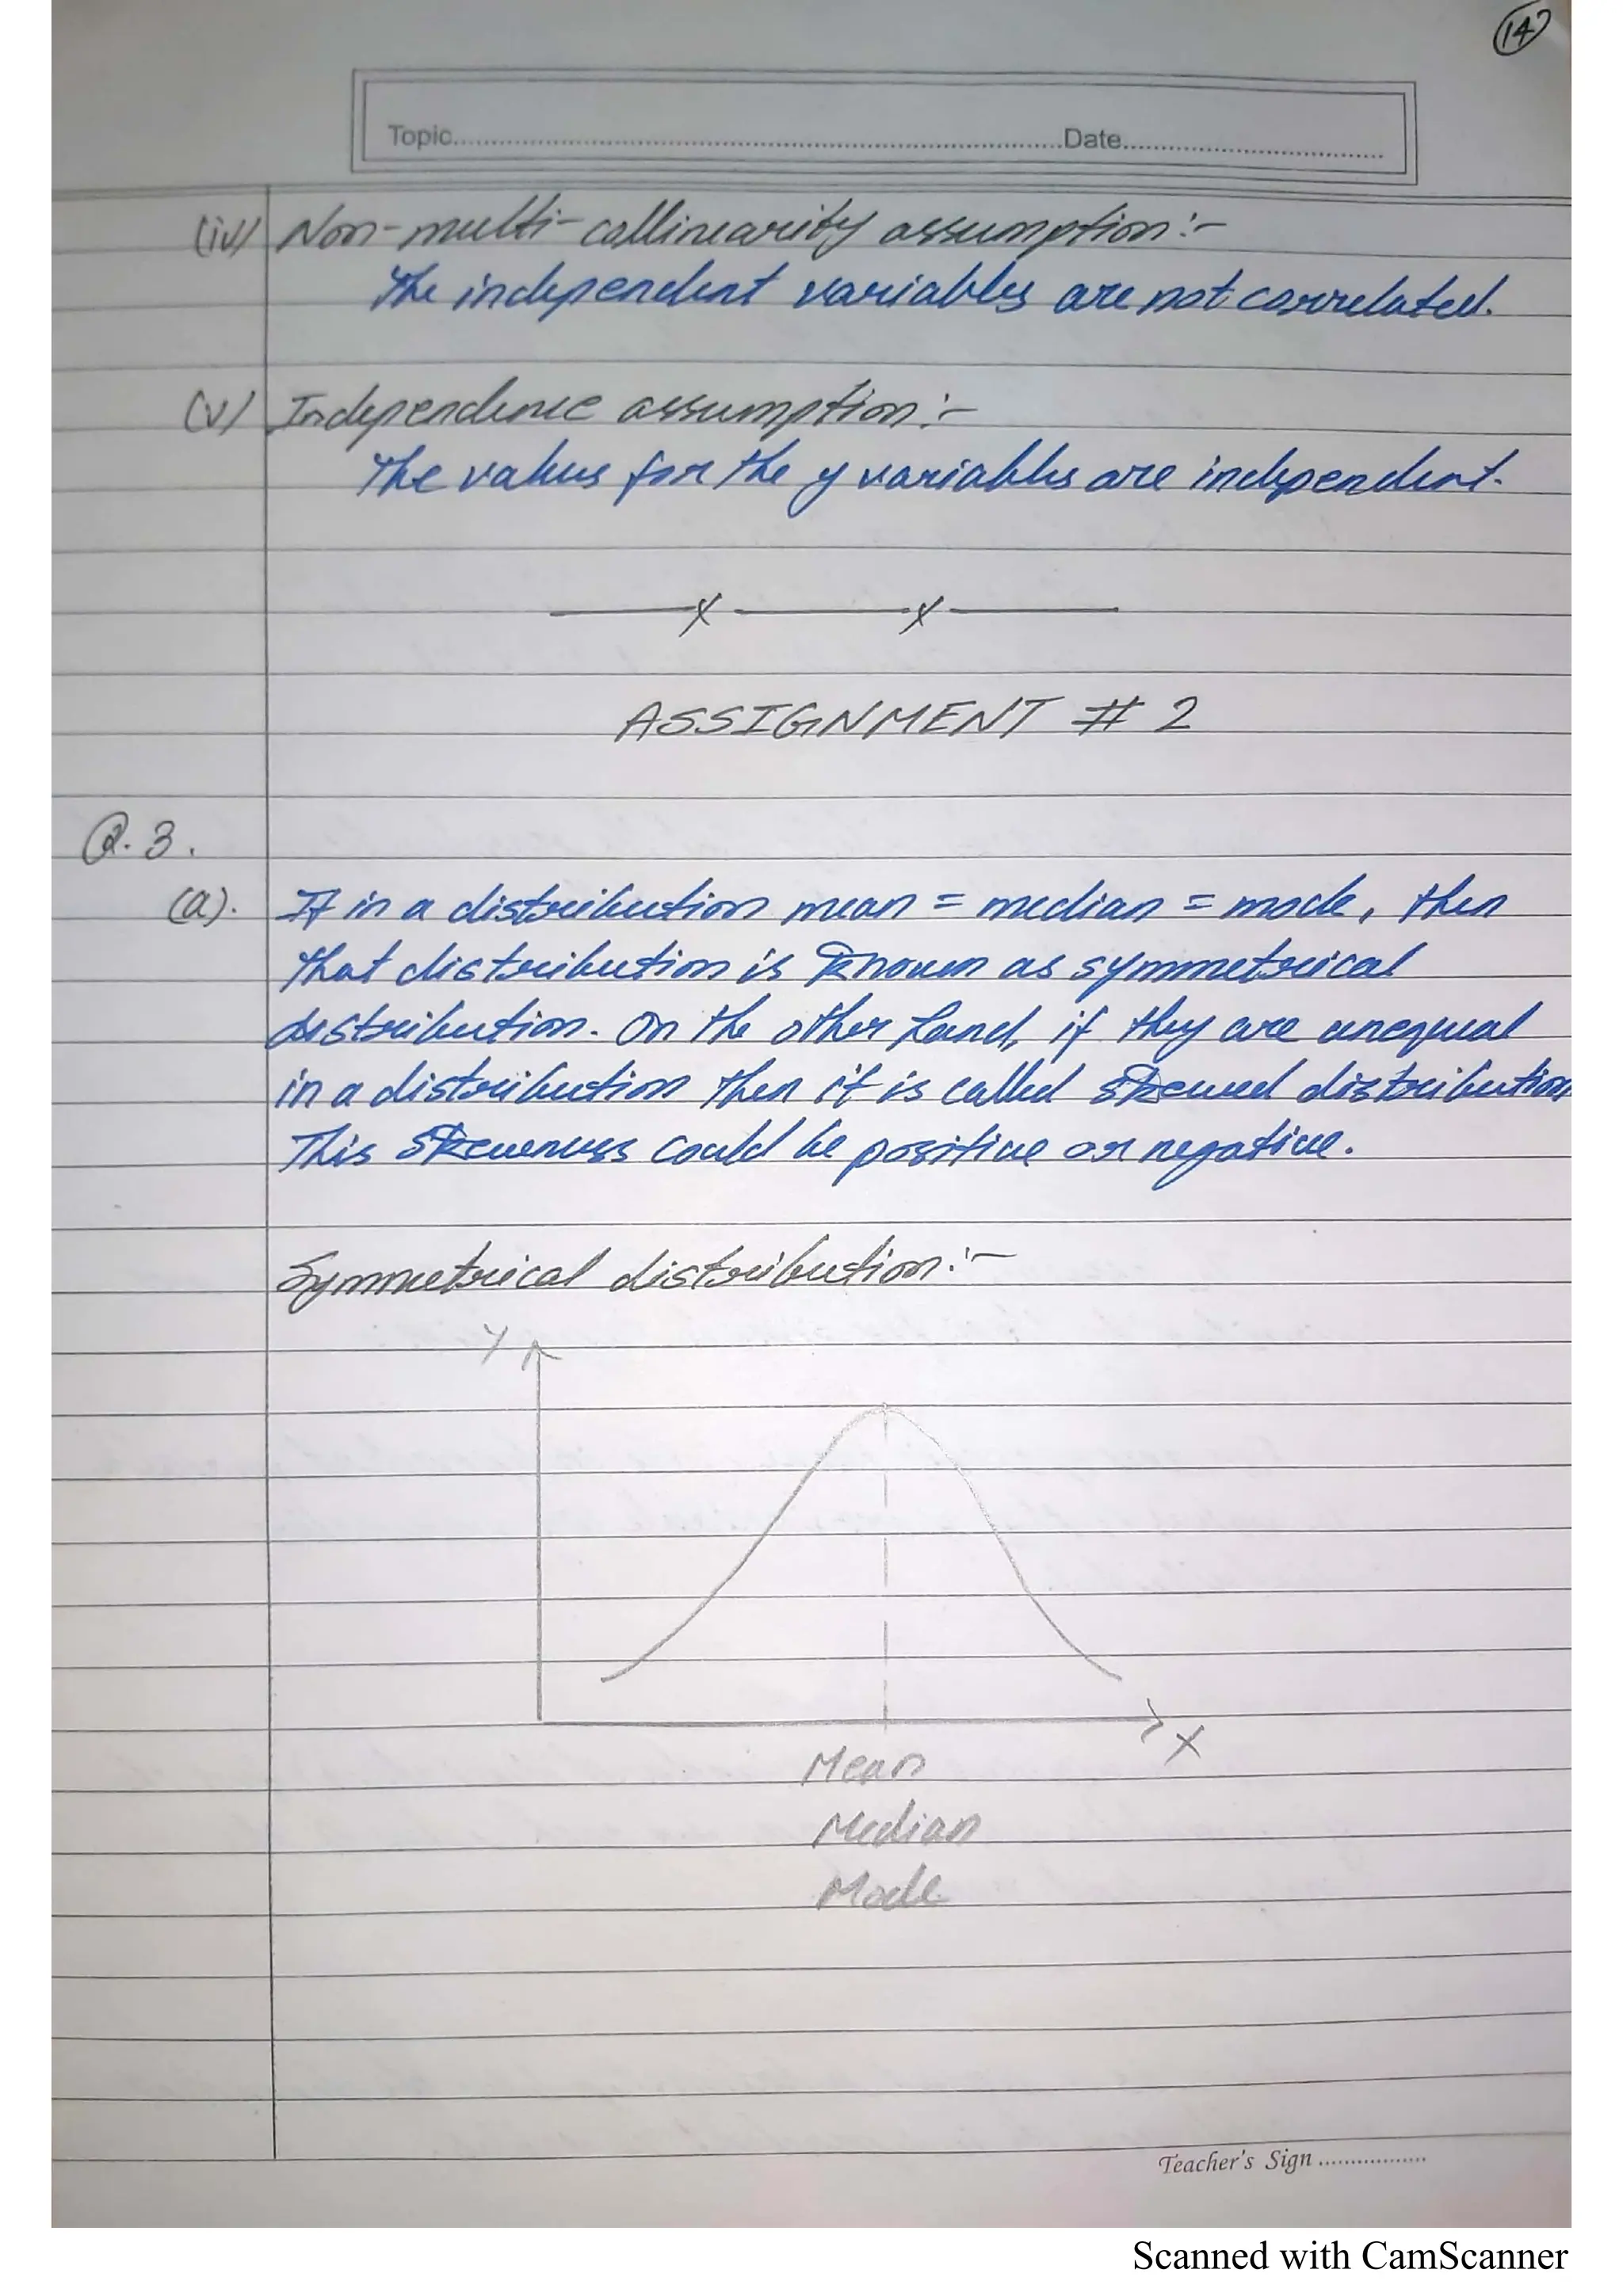 14
Topic..........Date..........
(iv) Non-multi-collinearity assumption:-
The independent variables are not correlated.
(v) Independence assumption:-
The values for the y variables are independent.
—x—x—
ASSIGNMENT # 2
Q.3.
(a). If in a distribution mean = median = mode, then
that distribution is known as symmetrical
distribution. On the other hand, if they are unequal
in a distribution then it is called skewed distribution
This skewness could be positive or negative.
Symmetrical distribution:-
Y
X
Mean
Median
Mode
Teacher's Sign ..................
Scanned with CamScanner